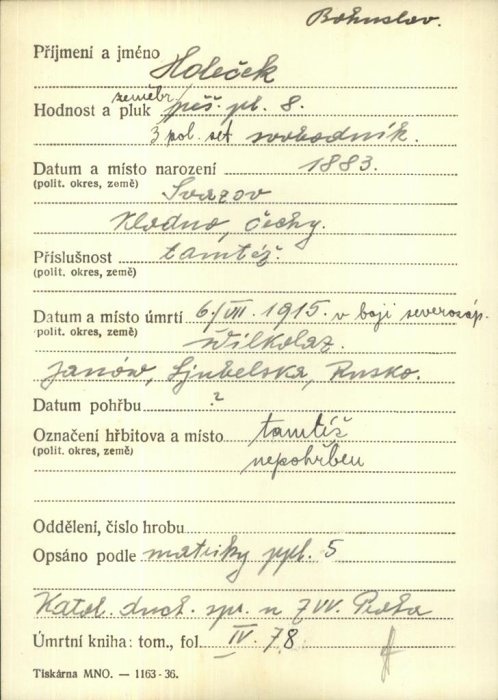 Bohuslav.
Příjmení a jméno Holeček
zeměbr.
Hodnost a pluk pěš. pl. 8.
3 pol. set svobodník.
Datum a místo narození 1883.
(polit. okres, země) Svazov
Kladno, Čechy.
Příslušnost tamtéž.
(polit. okres, země)
Datum a místo úmrtí 6./VII. 1915. v boji severozáp.
(polit. okres, země) Wilkolaz.
Janów, Ljubelska, Rusko.
Datum pohřbu ?
Označení hřbitova a místo tamtéž
(polit. okres, země) nepohřben
Oddělení, číslo hrobu
Opsáno podle matriky ppl. 5
Katol. duch. spr. u ZVV. Praha
Úmrtní kniha: tom., fol. IV. 78
Tiskárna MNO. — 1163-36.